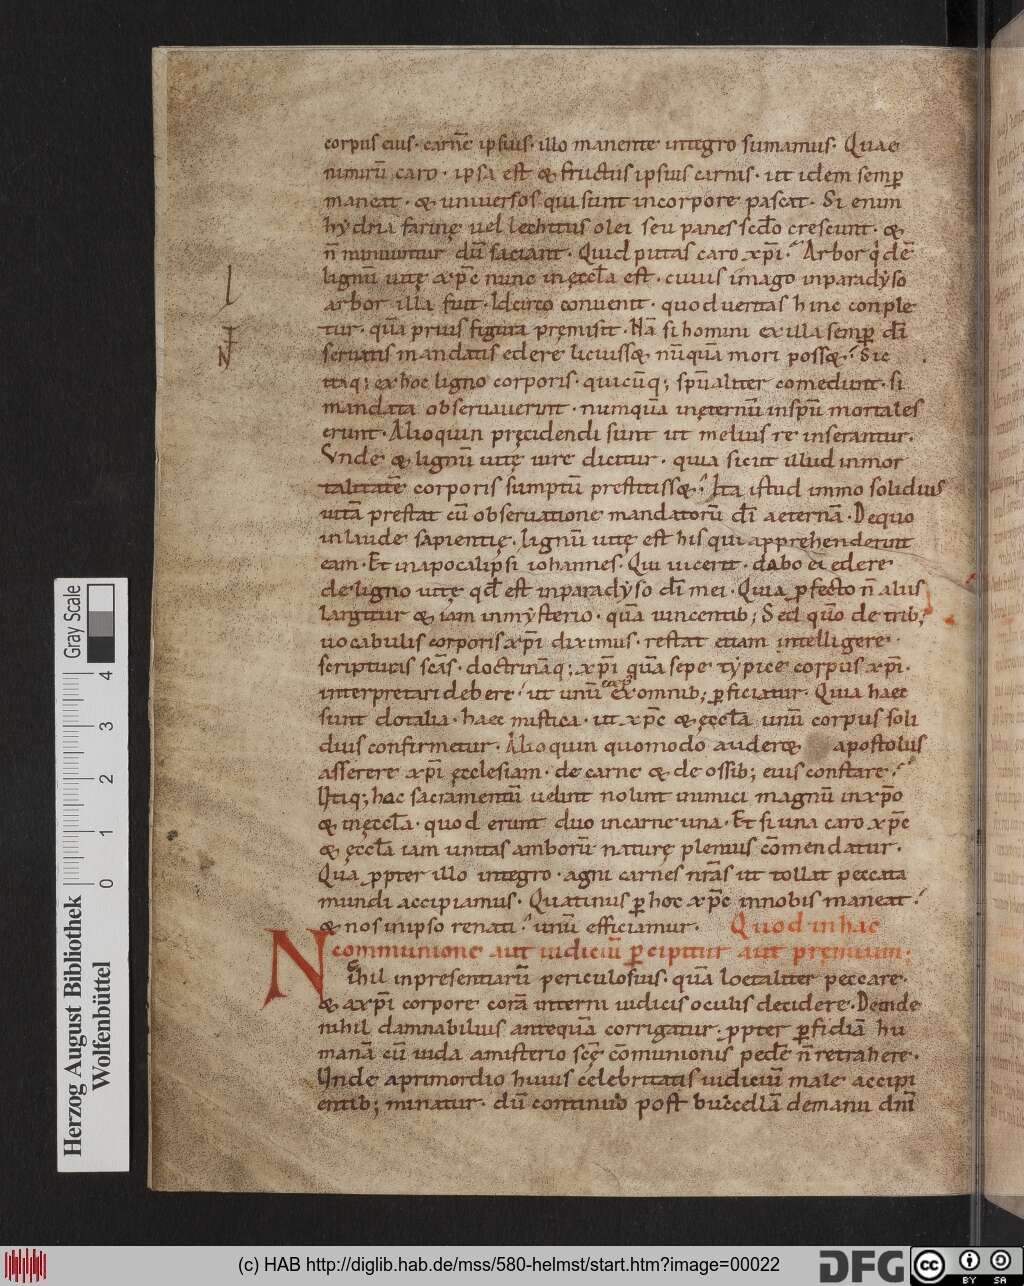 corpus eius· carnē ipsius· illo manente integro sumamus· Quae
nimirū caro· ipsa est & fructus ipsius carnis· ut idem semꝑ
maneat· & uniuersos qui sunt incorpore pascat· Si enim
hydria farinę uel lechitus olei seu panes scđo crescunt· &
n̄ minuuntur dū saciant· Quid putas caro xp̄i· Arbor q̇dē
lignū uitę xp̄c nunc inęccl̄a est· cuius imago inparadyso
arbor illa fuit· Idcirco conuenit· quod ueritas hinc conple
tur· quā prius figura pręmisit· Nā si homini ex illa semꝑ dī
seruatis mandatis edere licuiss&· nūquā mori poss&· Sic
itaq; ex hoc ligno corporis· quicūq; sp̄ualiter comedunt· si
mandata obseruauerint· numquā inęternū insp̄u mortales
erunt· Alioquin pręcidendi sunt ut melius re inserantur·
Vnde & lignū uitę iure dicitur· quia sicut illud inmor
talitatē corporis sumptū prestitiss&· Ita istud immo solidius
uitā prestat cū obseruatione mandatorū dī aeternā· De quo
inlaude sapientię· lignū uitę est his qui apprehenderint
eam· Et inapocalipsi iohannes· Qui uicerit· dabo ei edere
de ligno uitę qđ est inparadyso dī mei· Quia ꝓfecto n̄ aliis
largitur & iam inmysterio· quā uincentib; Sed quō de trib;
uocabulis corporis xp̄i diximus· restat etiam intelligere·
scripturas scās· doctrināq; xp̄i quā sepe typice corpus xp̄i·
interpretari debere· ut unū corp' ex omnib; ꝑficiatur· Quia haec
sunt dotalia· haec mistica· ut xp̄c & ęccl̄a unū corpus soli
dius confirmetur· Alioquin quomodo auder& apostolus
asserere xp̄i ęcclesiam· de carne & de ossib; eius constare·
Utiq; hoc sacramentū uelint nolint inimici magnū inxp̄o
& inęccl̄a· quod erunt duo incarne una· Et si una caro xp̄c
& ęccl̄a iam unitas amborū naturę plenius cōmendatur·
Qua ꝓpter illo integro· agni carnes nrās ut tollat peccata
mundi accipiamus· Quatinus ꝑ hoc xp̄c innobis maneat·
& nos inipso renati· unū efficiamur· Quod in hac
communione aut iudiciū ꝑcipitur aut pręmium·
Nihil inpresentiarū periculosius· quā loetaliter peccare·
& axp̄i corpore corā interni iudicis oculis decidere· Deinde
nihil damnabilius antequā corrigatur· ꝓpter ꝑfidiā hu
manā cū iuda amisterio scę cōmunionis pedē n̄ retrahere·
Unde aprimordio huius celebritatis iudiciū male accipi
entib; minatur· dū continuo post buccellā demanu dnī
l
Herzog August Bibliothek
Wolfenbüttel
Gray Scale
0 1 2 3 4
(c) HAB http://diglib.hab.de/mss/580-helmst/start.htm?image=00022
DFG
cc BY SA